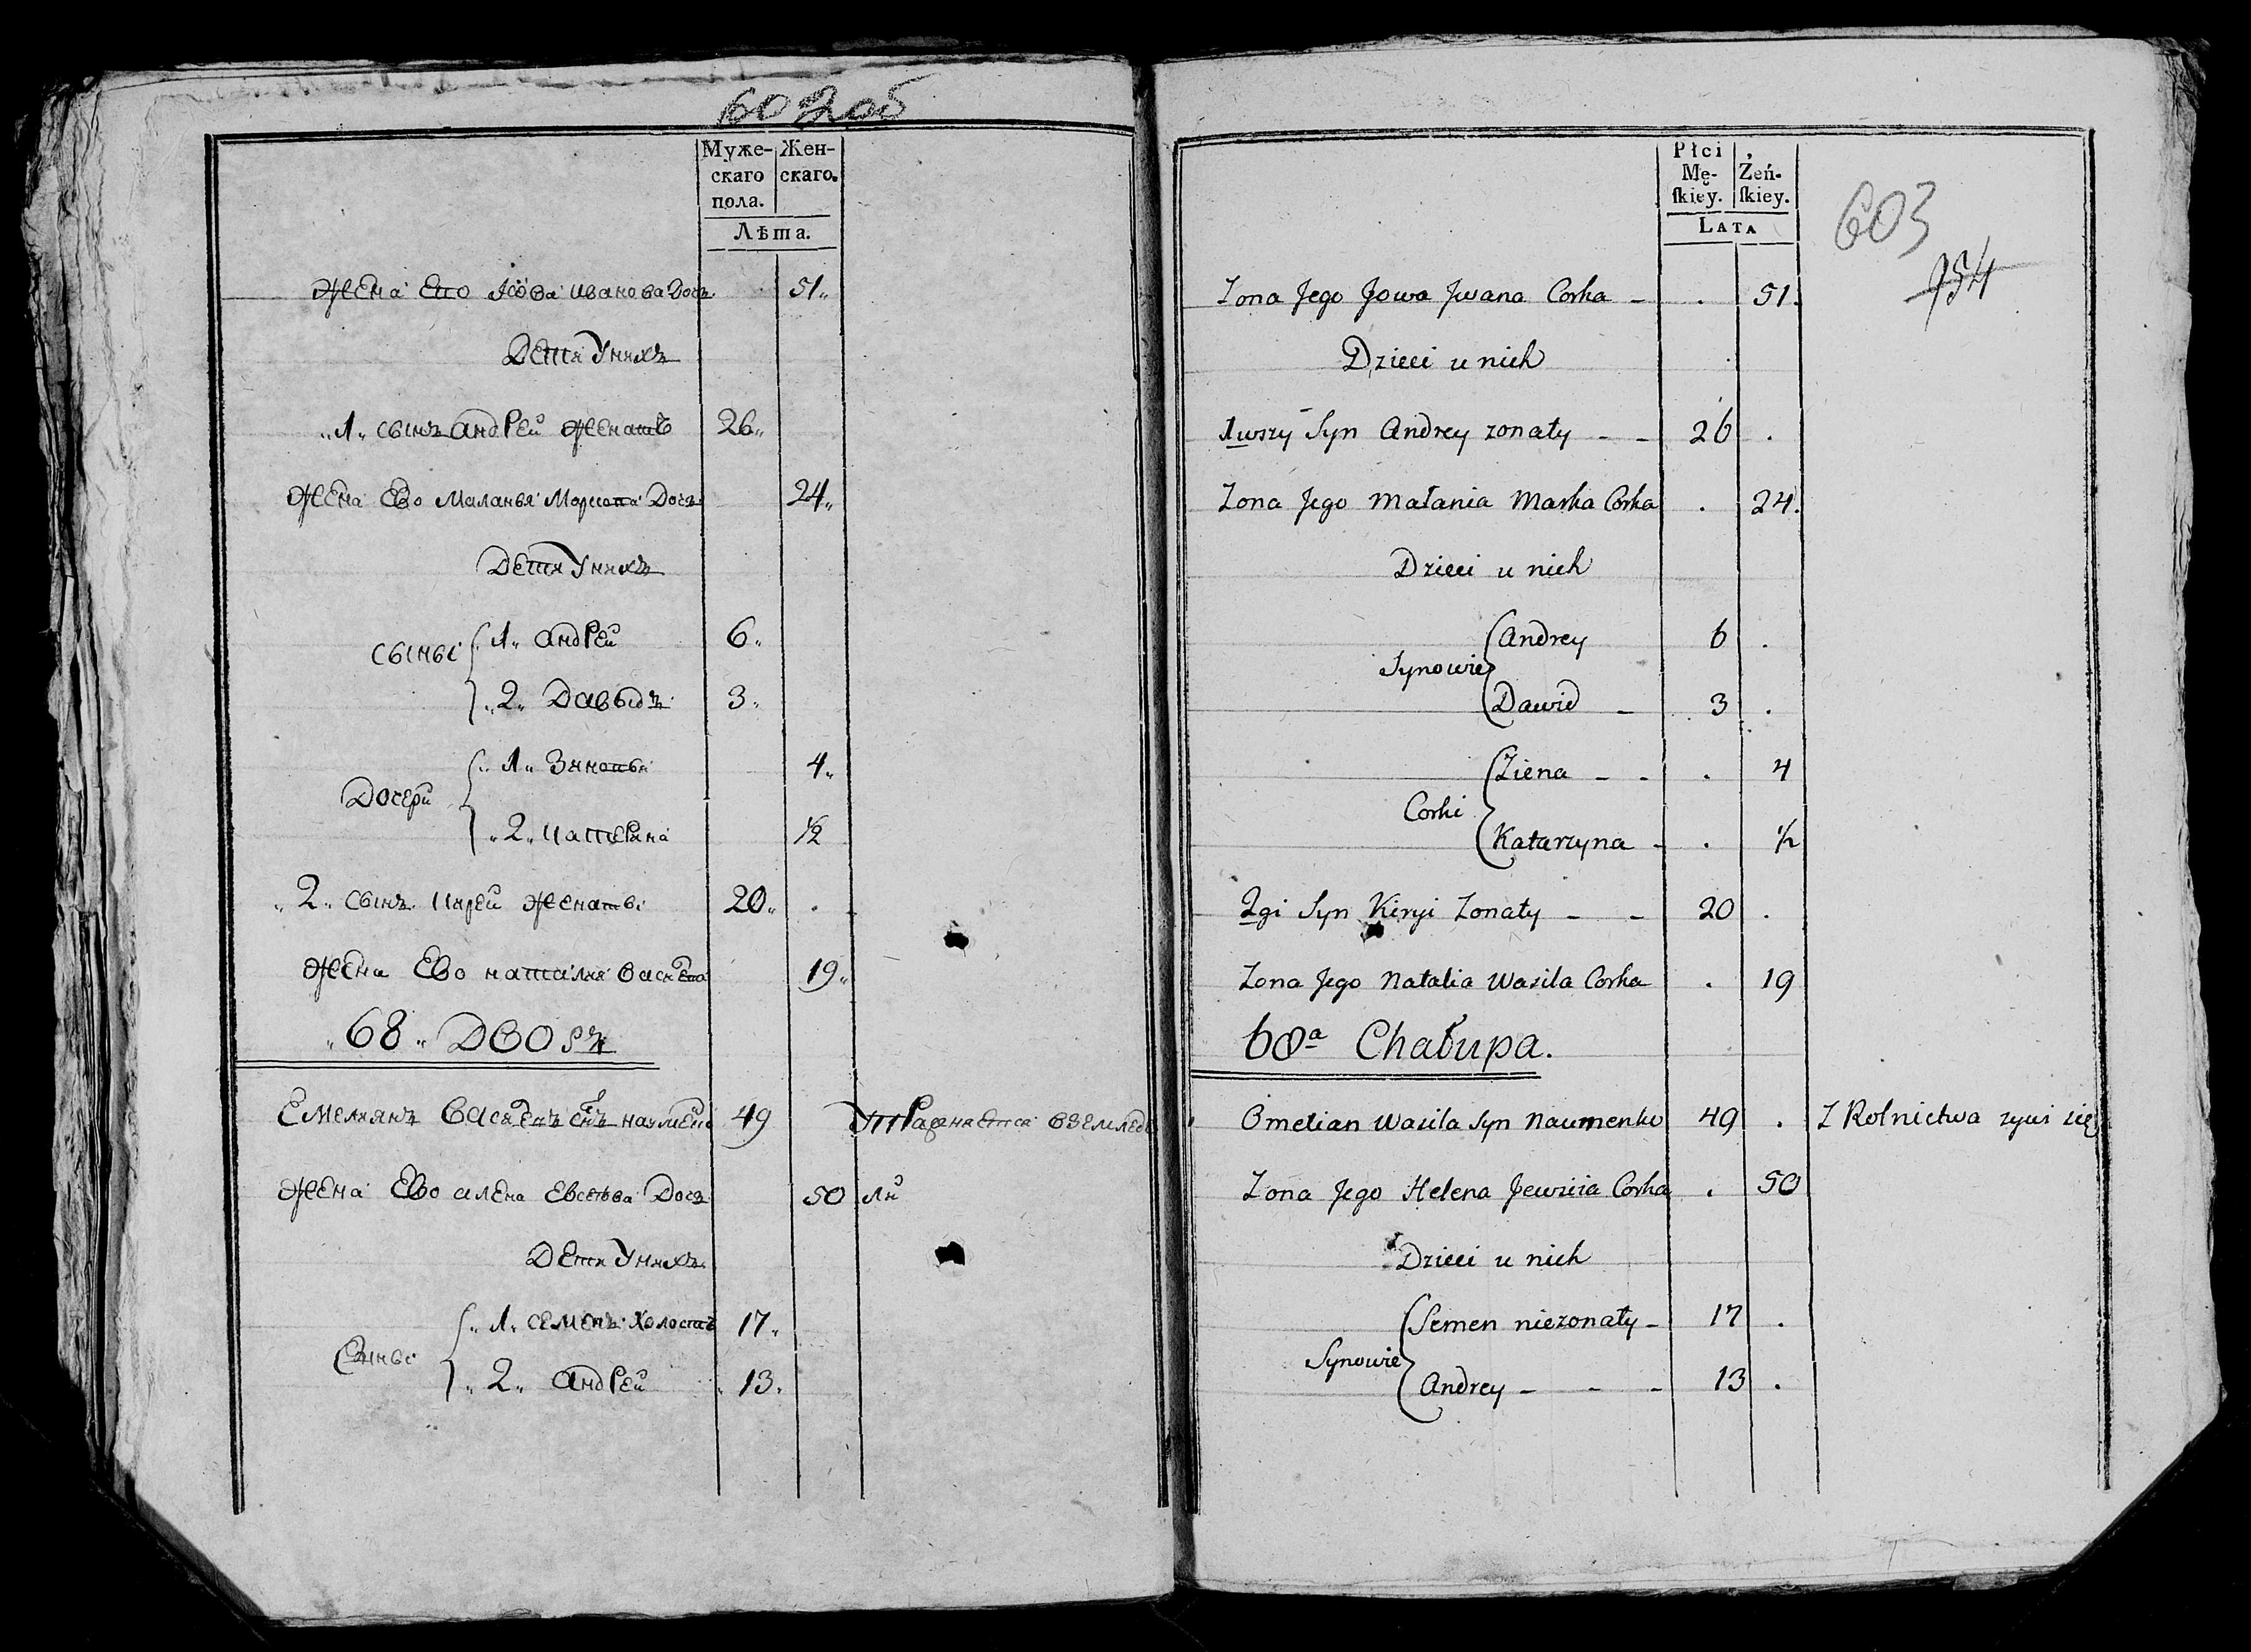 602 об
Муже- Жен-
скаго скаго.
пола.
Лѣта.
Жена Ево Іова Иванова Дочь 51
Дети У нихъ
1 сынъ андрей женатъ 26
Жена Ево Маланья Маркова Дочь 24
Дети У нихъ
сыны
1 андрей 6
2 Давыдъ 3
Дочери
1 4
2 катерина 1/2
2 сынъ кирей женаты 20
Жена Ево наталия 19
68 Дворъ
Емелианъ 49
Жена Ево алена Евсеева Дочь 50
Дети У нихъ
Сыны
1 семенъ холостъ 17
2 андрей 13
Płci
Mę- Żeń-
ſkiey. ſkiey.
LATA
603
754
Zona Jego Jowa Jwana Corka - . 51.
Dzieci u nich
1wszy Syn Andrey zonaty - - 26 .
Zona Jego Małania Marka Corka . 24.
Dzieci u nich
Synowie
Andrey 6 .
Dawid - 3 .
Corki
Ziena - - . 4
Katarzyna - . 1/2
2gi Syn Kiryi Zonaty - - 20 .
Zona Jego Natalia Wasila Corka . 19
68a Chałupa.
Omelian Wasila Syn Naumenko 49 . Z Rolnictwa zywi się
Zona Jego Helena Jewsieia Corka . 50
Dzieci u nich
Synowie
Semen niezonaty - 17 .
Andrey - - - 13 .